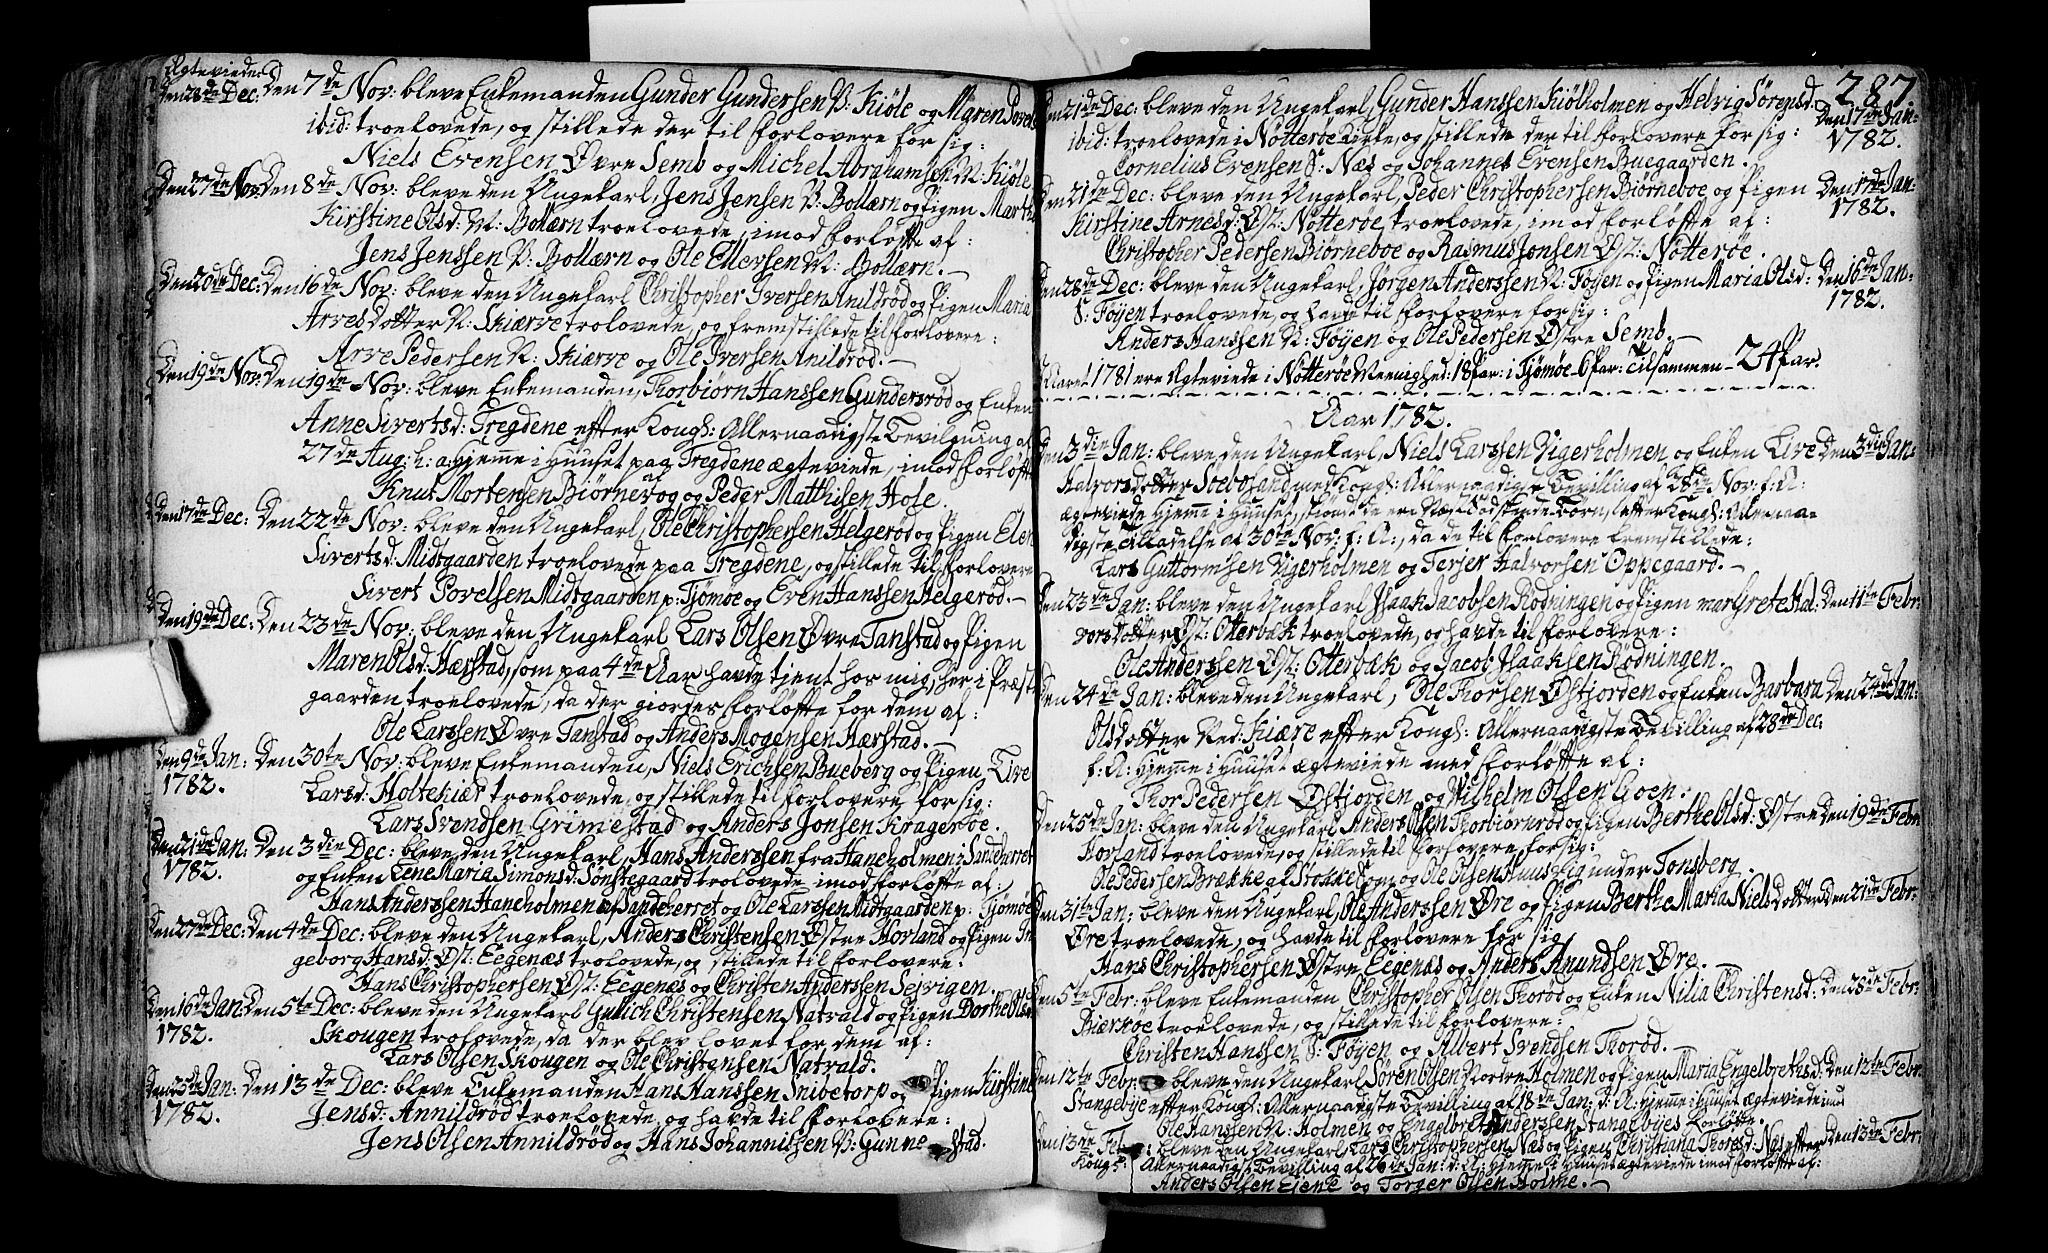 Ægteviede
Den 28de Dec: Den 7de Nov: bleve Enkemanden Gunder Gundersen V: Kiøle og Maren Povels
ibid: troelovede, og stillede der til forlovere for sig:
Niels Evensen Øvre Semb og Michel Abrahamsen N: Kiøle
Den 27de Nov: Den 8de Nov: bleve den Ungekarl, Jens Jensen V: Bollærn og Pigen Marthe
Kirstine Olsd: N: Bollærn troelovede, imod forløfte af:
Jens Jenssen V: Bollærn og Ole Ellersen N: Bollærn.
Den 20de Dec: Den 16de Nov: bleve den Ungekarl Christopher Iversen Anildrod og Pigen Maria
Arves Dotter N: Skiærve trolovede, og fremstillede til forlovere:
Arve Pedersen N: Skiærve og Ole Iversen Anildrød.
Den 19de Nov: Den 19de Nov: bleve Enkemanden, Thorbiørn Hanssen Gundersrød og Enken
Anne Siverts d: Tregdene effter Kongl: Allernaadigste Bevilgning af
27de Aug: h: a: hjemme i Huuset paa Tregdene ægteviede, imod forløfte
af
Knut Mortensen Biørnevog og Peder Matthisen Hole.
Den 17de Dec: Den 22de Nov: bleve den Ungekarl, Ole Christophersen Helgerød og Pigen Elen
Siverts d: Midtgaarden troelovede paa Tregdene, og stillede til forlovere
Sivert Povelsen Midtgaarden p: Tjømøe og Even Hanssen Helgerød.
Den 19de Dec: Den 23de Nov: bleve den Ungekarl Lars Olsen Øvre Tanstad og Pigen
Maren Olsd: Hærstad, som paa 4de Aar havde tjent hos mig, her i Præst
gaarden troelovede, da der giordes forløfte for dem af:
Ole Larssen Øvre Tanstad og Anders Mogensen Hærstad.
Den 9de Jan: Den 30te Nov: bleve Enkemanden, Niels Erichsen Bueberg og Pigen, Live
1782. Larsd: Holtekiær troelovede, og stillede til forlovere for sig:
Lars Svendsen Grimestad og Anders Jonsen Kragerøe.
Den 21de Jan: Den 3die Dec: bleve den Ungekarl, Hans Anderssen fra Haneholmen i Sandeherret
1782. og Enken Lene Maria Simonsd: Sønstegaard trolovede imod forløfte af:
Hans Anderssen Haneholmen af Sandeherret og Ole Larssen Midtgaarden p: Tjømøe
Den 27de Dec: Den 4de Dec: bleve den Ungekarl, Anders Christensen Østre Horland og Pigen In
geborg Hansd: Øst: Eegenæs trolovede, og stillede til forlovere:
Hans Christophersen Øst: Eegenæs og Christen Anderssen Sejvigen.
Den 16de Jan: Den 5te Dec: bleve den Ungekarl Gullich Christensen Natvald og Pigen Dorthe Olsd
1782. Skougen trolovede, da der blev lovet for dem af:
Lars Olsen Skougen og Ole Christensen Natvald.
Den 25de Jan: Den 13de Dec: bleve Enkemanden Hans Hanssen Snibetorp og Pigen Kirstine
1782. Jensd: Annildrød troelovede, og havde til forlovere:
Jens Olsen Annildrød og Hans Johannissen V: Gunnestad.
287.
Den 21de Dec: bleve den Ungekarl, Gunder Hanssen Kiølholmen og Helvig Sørensd: Den 17de Jan:
ibid: troelovede i Nøtterøe Kirke, og stillede der til forlovere for sig: 1782.
Cornelius Evensen S: Næs og Johannes Evensen Buegaarden.
Den 21de Dec: bleve den Ungekarl, Peder Christophersen Biørneboe og Pigen Den 17de Jan:
Kirstine Arnesd: Øst: Nøtterøe troelovede, imod forløffte af: 1782.
Christopher Pedersen Biørneboe og Rasmus Jonsen Øst: Nøtterøe.
Den 28de Dec: bleve den Ungekarl, Jørgen Anderssen N: Føyen og Pigen Maria Olsd: Den 16de Jan:
S: Føyen troelovede, og havde til forlovere for sig: 1782.
Anders Hanssen N: Føyen og Ole Pedersen Østre Semb.
Aaret 1781 ere Ægteviede i Nøtterøe Meenighed: 18 Par: i Tjømøe - 6 par: Tilsammen - 24 Par.
Aar 1782.
Den 3die Jan: bleve den Ungekarl, Niels Larssen Vigerholmen og Enken Live Den 3die Jan:
Halvors Dotter Søebosand med Kongl: Allernaadigste Bevilling af 28de Nov: f: A:
ægteviede hjemme i Huuset, skiønt de ere Næst-Sødskende-Børn, effter Kongl: Allernaa-
digste Tilladelse af 30te Nov: f: A:, da de til forlovere fremstillede:
Lars Guttormsen Vigerholmen og Terjer Halvorsen Oppegaard.
Den 23de Jan: bleve den Ungekarl Isaak Jacobsen Rødningen og Pigen Margrete Hal: Den 11te Febr:
vors Dotter Øst: Otterbæk troelovede, og havde til forlovere:
Ole Anderssen Øst: Otterbæk og Jacob Isaaksen Rødningen.
Den 24de Jan: bleve den Ungekarl, Ole Thorsen Østjorden og Enken Barbara Den 24de Jan:
Olsdotter Ned: Kiære effter Kongl: Allernaadigste Bevilling af 28de Dec:
f: A: hjemme i Huuset ægteviede med forløfte af:
Thor Pedersen Østjorden og Vilhelm Olsen Goen.
Den 25de Jan: bleve den Ungekarl Anders Olsen Thorbiørnrød og Pigen Berthe Olsd: Østre Den 19de Febr
Horland troelovede, og stillede til forlovere for sig:
Ole Pedersen Brække af Stokke Sogn og Ole Olsen Huusvig under Tonsberg.
Den 31te Jan: bleve den Ungekarl, Ole Anderssen Øre og Pigen Berthe Maria Niels Dotter Den 21de Febr:
Øre troelovede, og havde til forlovere for sig
Hans Christophersen Østre Eegenæs og Anders Anundsen Øre.
Den 5te Febr: bleve Enkemanden Christopher Olsen Thorød og Enken Nilia Christensd: Den 28de Febr:
Biærkøe troelovede, og stillede til forlovere:
Christen Hanssen S: Føyen og Albert Svendsen Thorød.
Den 12te Febr: bleve den Ungekarl Søren Olsen Nordre Holmen og Pigen Maria Engelbrethsd: Den 12te Febr:
Stangebye effter Kongl: Allernaadigste Bevilling af 18de Jan: d: A: hjemme i Huuset ægteviede imod
Ole Hanssen N: Holmen og Engelbret Anderssen Stangebyes forløfte.
Den 13de Feb: bleve den Ungekarl Lars Christophersen Næs og Pigen Christiana Thoresd: Næs effter Den 13de Febr:
Kongl: Allernaadigste Bevilling af 26de Jan: d: A: hjemme i Huuset ægteviede imod forløffte af:
Anders Olsen Ejene og Torger Olsen Holme.